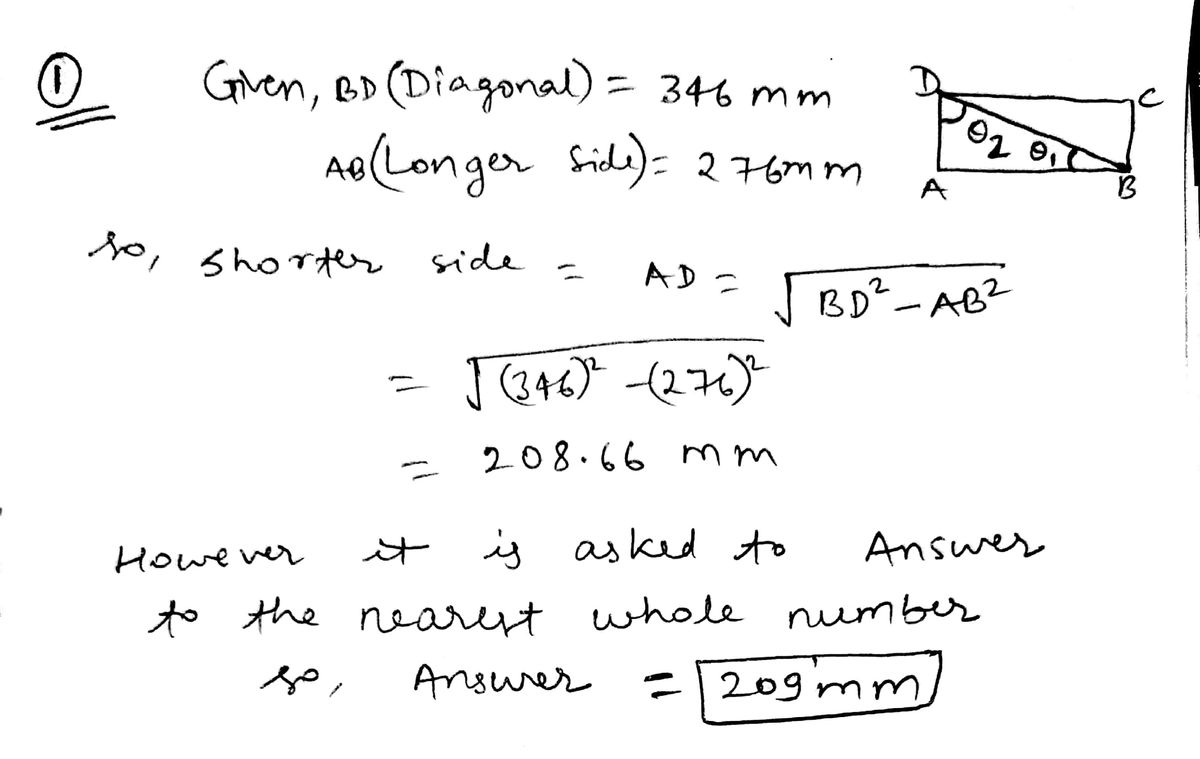 ① Given, BD (Diagonal) = 346 mm
AB (Longer side) = 276mm
D C
θ2 θ1
A B
so, shorter side = AD = √BD² - AB²
= √(346)² -(276)²
= 208.66 mm
However it is asked to Answer
to the nearest whole number
so, Answer = 209 mm